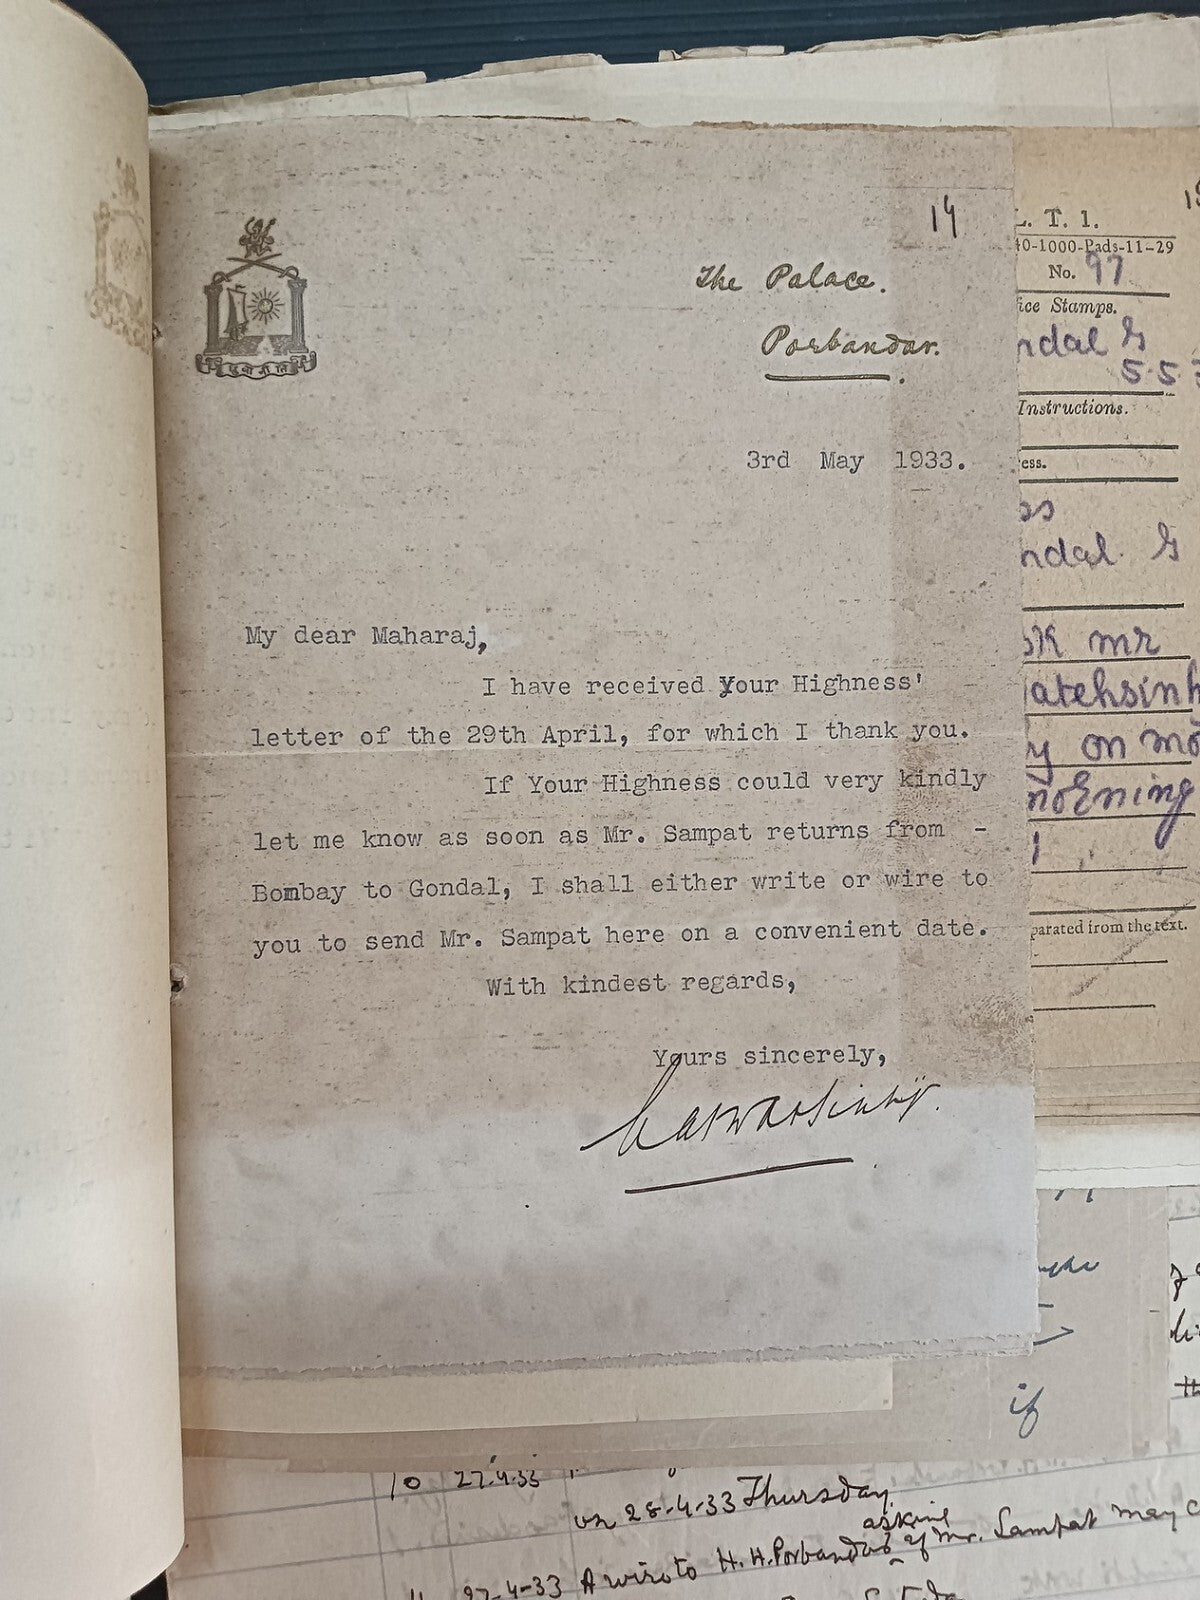 14
The Palace.
Porbandar.
3rd May 1933.
My dear Maharaj,
I have received Your Highness'
letter of the 29th April, for which I thank you.
If Your Highness could very kindly
let me know as soon as Mr. Sampat returns from -
Bombay to Gondal, I shall either write or wire to
you to send Mr. Sampat here on a convenient date.
With kindest regards,
Yours sincerely,
L. T. 1.
40-1000-Pads-11-29
No. 97
ice Stamps.
ndal G
5.5
Instructions.
ess.
ss
ndal. G
mr
atehsinh
y on mo
morning
parated from the text.
if
10 27.4.33
on 28-4-33 Thursday
asking
27-4-33 A wire to H.H. Porbandar if Mr. Sampat may